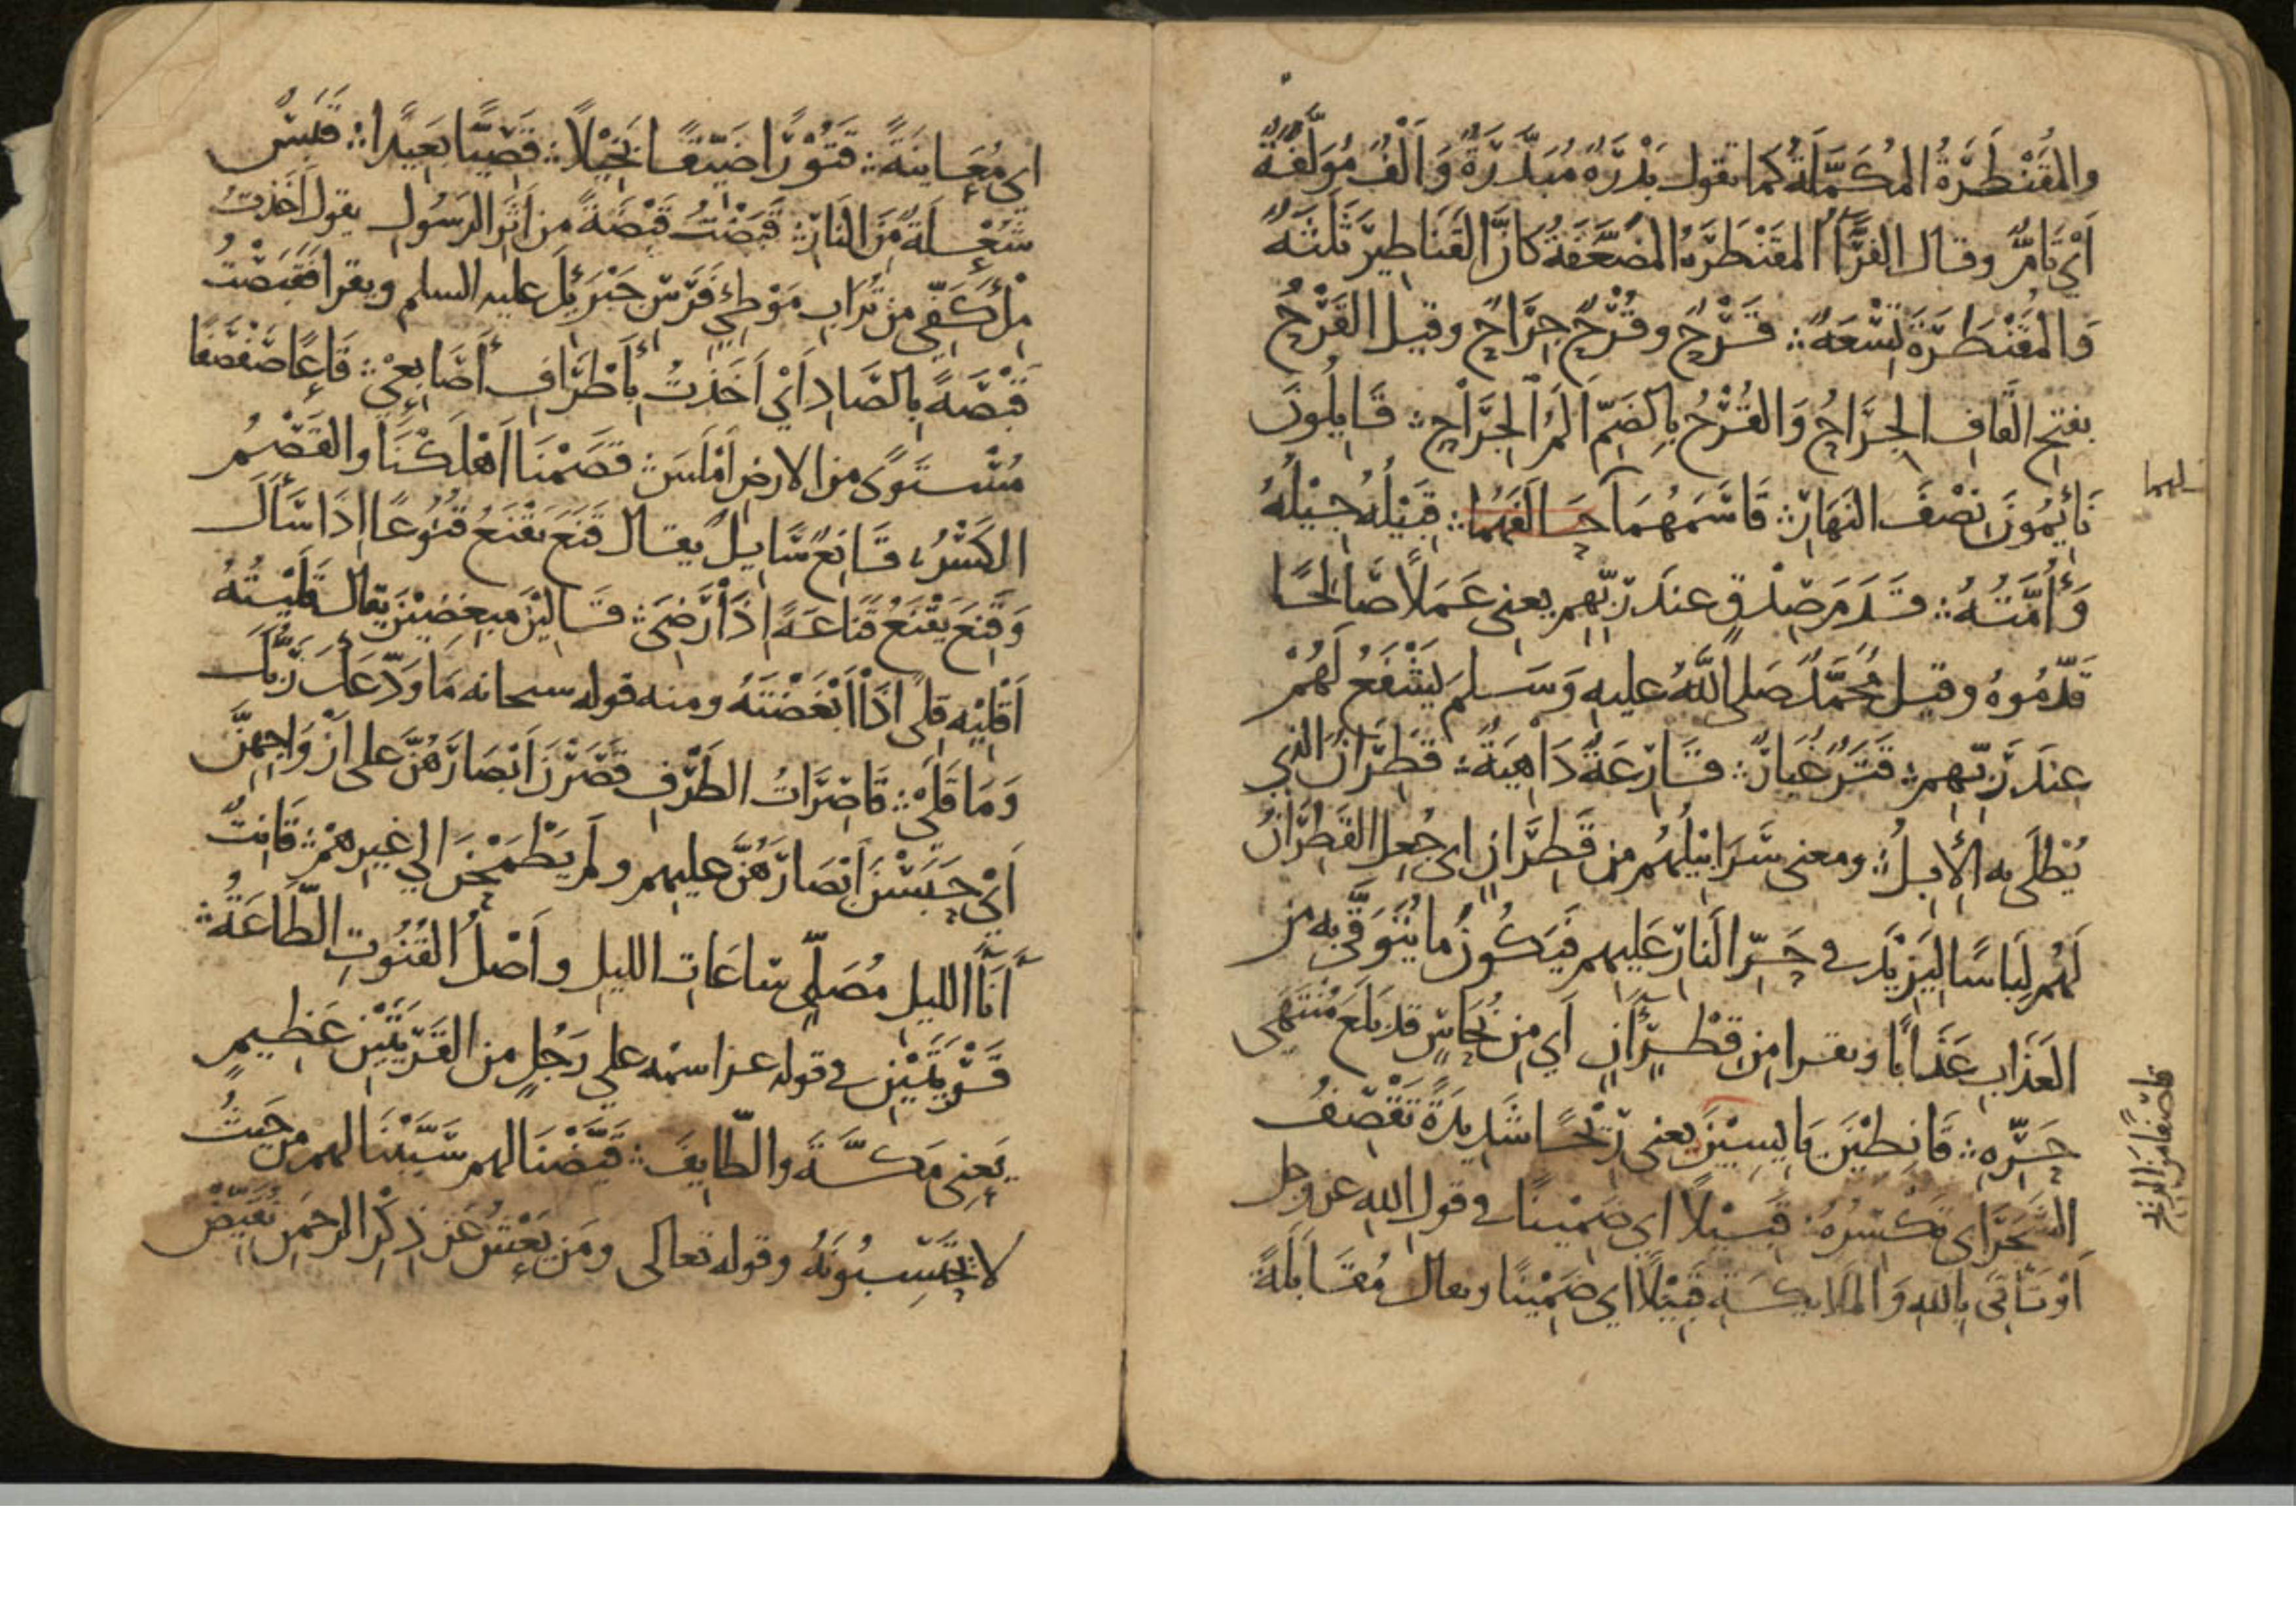 والمُقَنْطَرَةُ المُكَمَّلَةُ كما تقول بَدْرَةٌ مُبَدَّرَةٌ وَأَلْفٌ مُؤَلَّفَةٌ
أَيْ تَامٌّ وقال الفَرَّاءُ المُقَنْطَرَةُ المُضَعَّفَةُ كَأَنَّ القَنَاطِيرَ ثَلَثَةٌ
وَالمُقَنْطَرَةَ تِسْعَةٌ ∴ قَرْحٌ وقُرْحٌ جِرَاحٌ وقيل القَرْحُ
بفتح القَافِ الجِرَاحُ وَالقُرْحُ بِالضَمِّ أَلَمُ الجِرَاحِ ∴ قَايِلُونَ
نَائِمُونَ نِصْفَ النَهَارِ ∴ قَاسَمَهُمَا حَالَفَهُمَا ∴ قَبِيْلُهُ جِيْلُهُ
وَأُمَّتُهُ ∴ قَدَمَ صِدْقٍ عند رَبِّهِم يعنى عَمَلاً صَالِحًا
قَدَّمُوهُ وقيل مُحَمَّدٌ صَلى اللَّهُ عليه وَسَلم يَشْفَعُ لَهُمْ
عِندَ رَبِّهِم ∴ قَتَرٌ غُبَارٌ ∴ قَارِعَةٌ دَاهِيَةٌ ∴ قَطِرَانٌ الذي
يُطْلَى بِه الإِبِلُ ∴ ومعنى سَرَابِيْلُهُم مِن قَطِرَانٍ اى جُعِلَ القَطِرَانُ
لَهُم لِبَاسًا لِيَزِيْدَ في حَرِّ النَارِ عَلَيهِم فَيَكُونُ ما يُتَوَقَّى بِه مِن
العَذَابِ عَذَابًا ويقرا مِن قِطْرٍ آنٍ أَي مِن نُحَاسٍ قد بَلَغَ مُنْتَهَى
حَرِّهِ ∴ قَانِطِيْنَ يَايِسِيْنَ يعنى رِيْحًا شَدِيدَةً تَقْصِفُ
الشَجَرَ اى تَكْسِرُهُ ∴ قَبِيْلاً اى ضَمِيْنًا في قول الله عز وجل
أَوْ تَأْتِىَ بِاللهِ وَالمَلَايِكَةِ قَبِيْلاً اى ضَمِيْنًا ويقال مُقَابَلَةً
قاصفًا من الريح
اى مُعَايَنَةً ∴ قَتُوْرًا ضَيِّقًا بَخِيْلاً ∴ قَصِيًّا بَعِيْدًا ∴ قَبَسٌ
شُعْلَةٌ مِنَ النَارِ ∴ قَبَضْتُ قَبْضَةً مِن أَثَرِ الرَسُولِ يقول أَخَذتُ
مِلْءَ كَفِّى مِن تُرَابِ مَوْطِئِ فَرَسِ جَبْرَئِيلَ عليه السلم ويقرا فَقَبَصْتُ
قَبْصَةً بِالصَادِ أَيْ أَخَذتُ بِأَطْرَافِ أَصَابِعِي ∴ قَاعًا صَفْصَفًا
مُسْتَوًى من الارضِ أَمْلَسَ ∴ قَصَمْنَا أَهْلَكْنَا والقَصْمُ
الكَسْرُ ∴ قَانِعٌ سَايِلٌ يقال قَنَعَ يَقْنَعُ قُنُوعًا إِذَا سَأَلَ
وَقَنِعَ يَقْنَعُ قَنَاعَةً إِذَا رَضِىَ ∴ قَالِيْنَ مبغِضِيْنَ يقال قَلَيْتُهُ
أَقْلِيْهِ قِلًى إِذَا أَبْغَضْتَهُ ومنه قوله سبحانه مَا وَدَّعَكَ رَبُّكَ
وَمَا قَلَىٰ ∴ قَاصِرَاتُ الطَرْفِ قَصَرْنَ أَبْصَارَهُنَّ على أَزْوَاجِهِنَّ
أَيْ حَبَسْنَ أَبْصَارَهُنَّ عليهم ولَم يَطْمَحْنَ إلى غيرِهمْ ∴ قَانِتٌ
آنَاءَ الليل مُصَلٍّى سَاعَاتِ الليلِ وأَصْلُ القُنُوتِ الطَاعَةُ ∴
قَرْيَتَيْنِ في قوله عز اسمه على رَجُلٍ من القَرْيَتَيْنِ عَظِيمٍ
يَعنِى مَكَّةَ والطَايِفَ ∴ قَيَّضْنَا لهم سَبَّبْنَا لهم من حَيثُ
لا يَحْتَسِبُونَهُ وقوله تعالى ومَن يَعْشُ عَن ذِكْرِ الرحمن نُقَيِّضْ